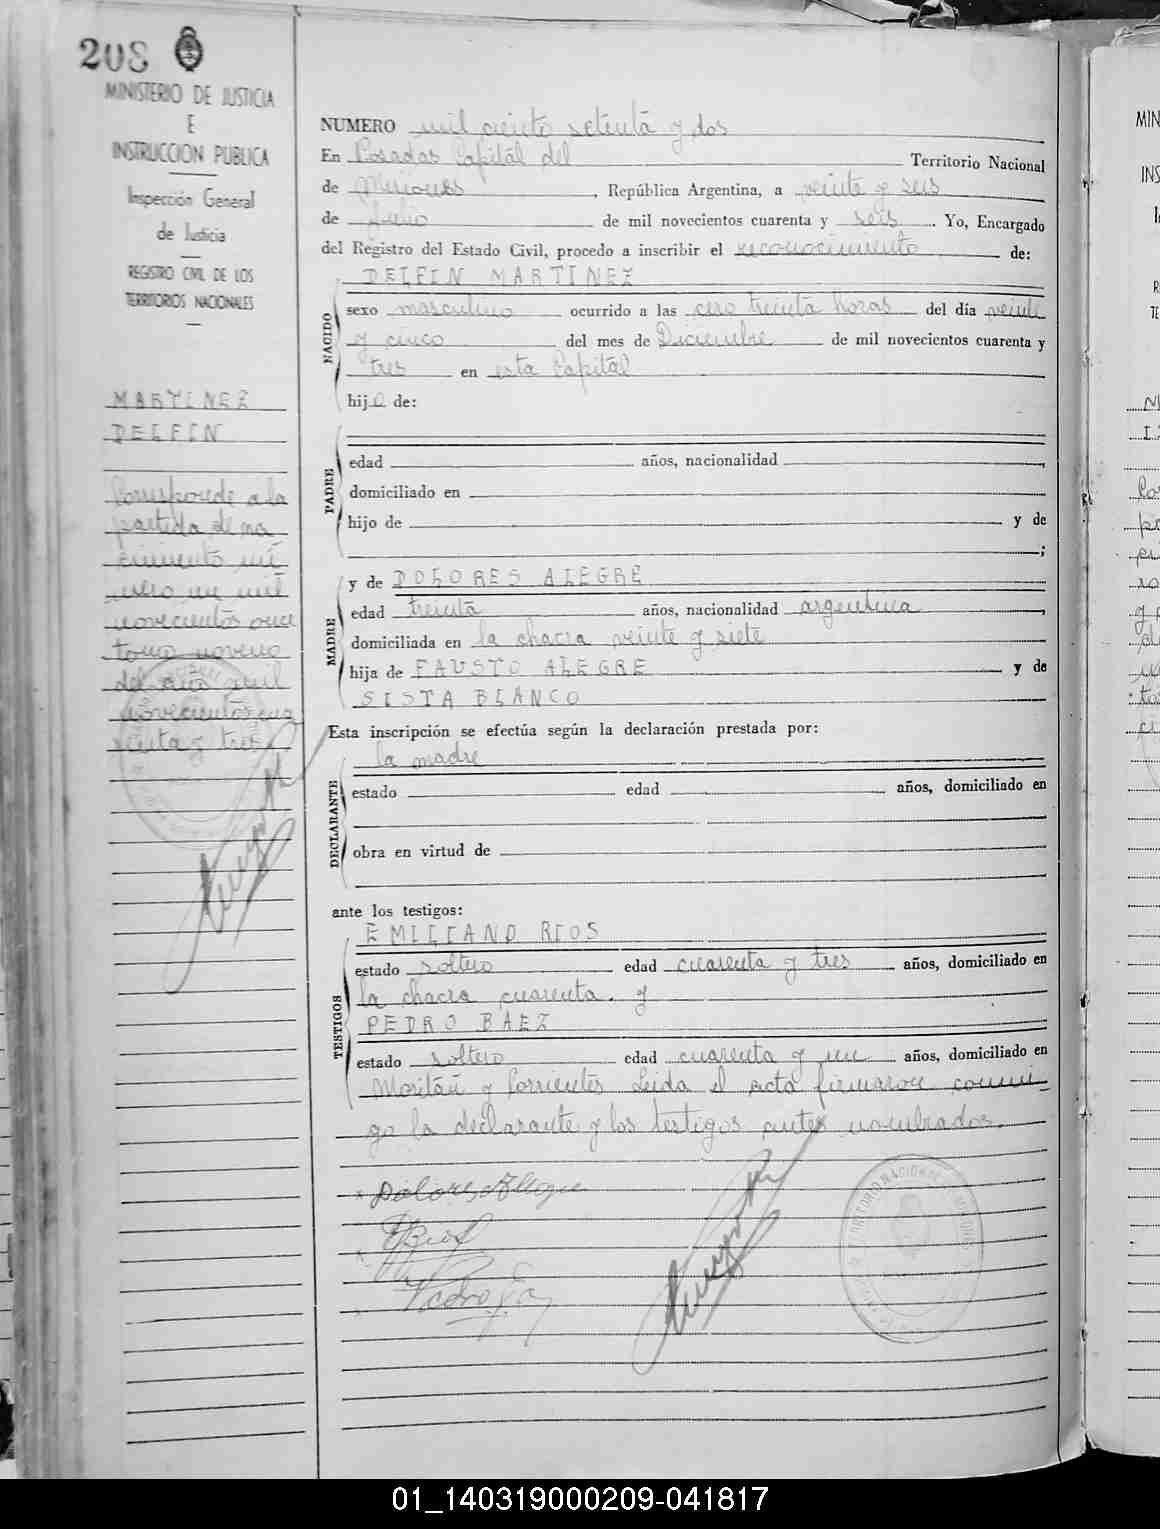 208
MINISTERIO DE JUSTICIA
E
INSTRUCCION PUBLICA
Inspección General
de Justicia
REGISTRO CIVIL DE LOS
TERRITORIOS NACIONALES
MARTINEZ
DELFIN
Corresponde a la
partida de na
cimiento nú
mero un mil
novecientos once
tomo noveno
del año mil
novecientos cua
renta y tres
NUMERO mil ciento setenta y dos
En Posadas Capital del Territorio Nacional
de Misiones, República Argentina, a veinte y seis
de Julio de mil novecientos cuarenta y seis. Yo, Encargado
del Registro del Estado Civil, procedo a inscribir el reconocimiento de:
DELFIN MARTINEZ
NACIDO
sexo masculino ocurrido a las cero treinta horas del día veinte
y cinco del mes de Diciembre de mil novecientos cuarenta y
tres en esta Capital
hijo de:
PADRE
edad años, nacionalidad ,
domiciliado en
hijo de y de
;
MADRE
y de DOLORES ALEGRE
edad treinta años, nacionalidad argentina,
domiciliada en la chacra veinte y siete
hija de FAUSTO ALEGRE y de
SISTA BLANCO
Esta inscripción se efectúa según la declaración prestada por:
la madre
DECLARANTE
estado edad años, domiciliado en
obra en virtud de
ante los testigos:
EMILIANO RIOS
TESTIGOS
estado soltero edad cuarenta y tres años, domiciliado en
la chacra cuarenta. y
PEDRO BAEZ
estado soltero edad cuarenta y un años, domiciliado en
y Corrientes Leida el acta firmaron conmi-
go la declarante y los testigos antes nombrados.
Dolores Alegre
01_140319000209-041817